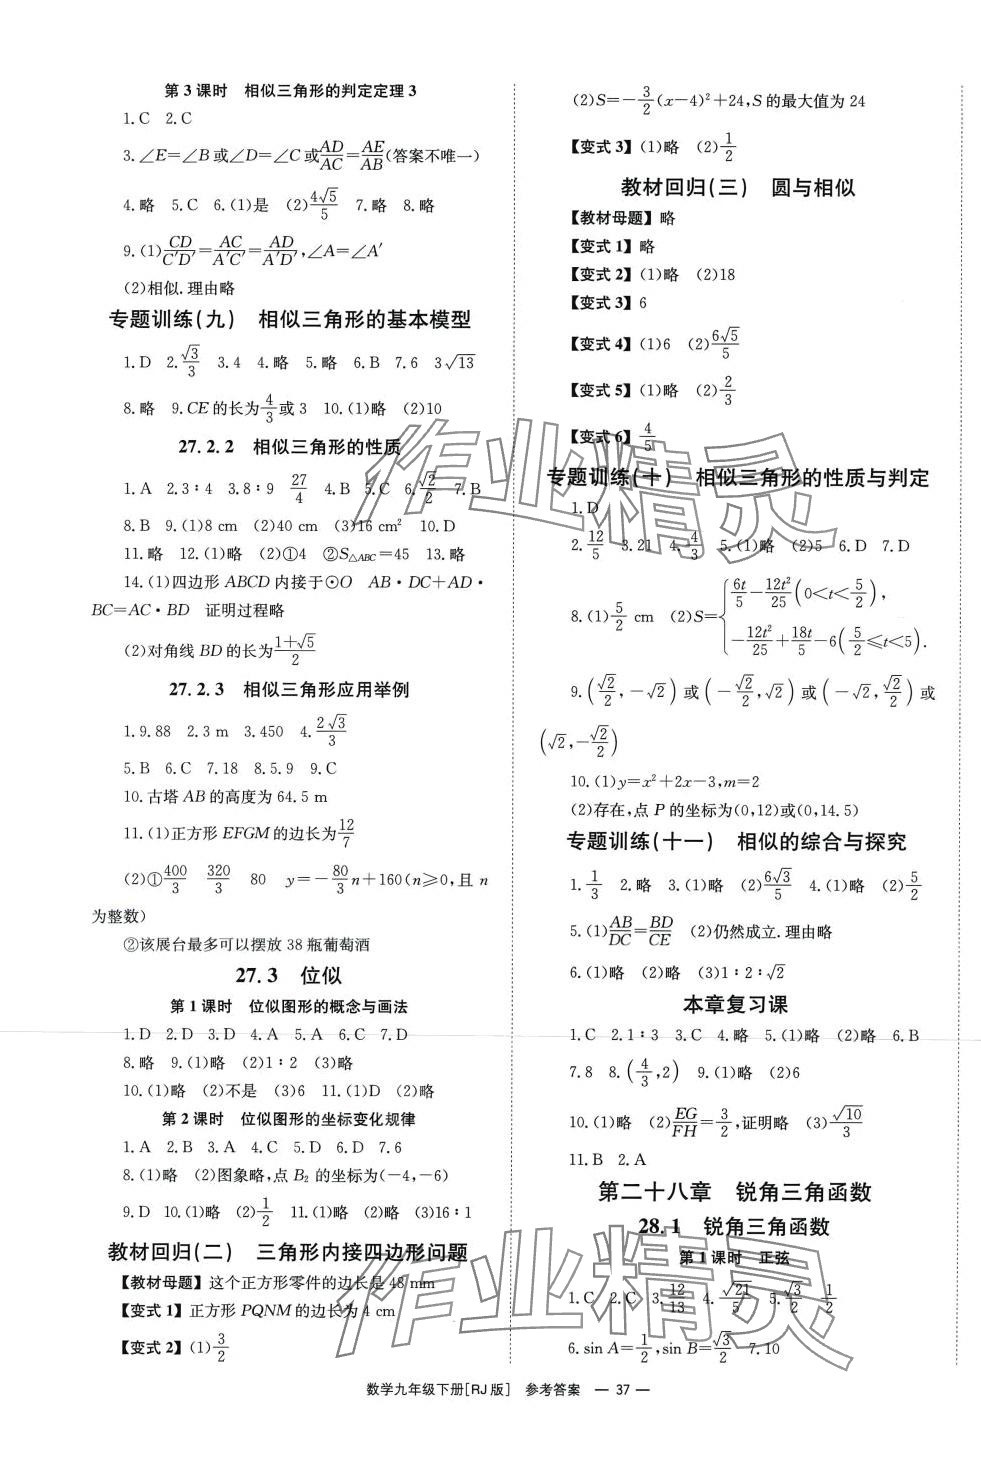 第3课时 相似三角形的判定定理3
1.C 2.C
3.∠E=∠B或∠D=∠C或AD/AC=AE/AB(答案不唯一)
4.略 5.C 6.(1)是 (2)4√5/5 7.略 8.略
9.(1)CD/C'D'=AC/A'C'=AD/A'D',∠A=∠A'
(2)相似.理由略
专题训练(九) 相似三角形的基本模型
1.D 2.√3/3 3.4 4.略 5.略 6.B 7.6 3√13
8.略 9.CE的长为4/3或3 10.(1)略 (2)10
27.2.2 相似三角形的性质
1.A 2.3∶4 3.8∶9 27/4 4.B 5.C 6.√2/2 7.B
8.B 9.(1)8 cm (2)40 cm (3)16 cm² 10.D
11.略 12.(1)略 (2)①4 ②S△ABC=45 13.略
14.(1)四边形ABCD内接于⊙O AB·DC+AD·
BC=AC·BD 证明过程略
(2)对角线BD的长为(1+√5)/2
27.2.3 相似三角形应用举例
1.9.88 2.3 m 3.450 4.2√3/3
5.B 6.C 7.18 8.5.9 9.C
10.古塔AB的高度为64.5 m
11.(1)正方形EFGM的边长为12/7
(2)①400/3 320/3 80 y=-80/3n+160(n≥0,且n
为整数)
②该展台最多可以摆放38瓶葡萄酒
27.3 位似
第1课时 位似图形的概念与画法
1.D 2.D 3.D 4.A 5.A 6.C 7.D
8.略 9.(1)略 (2)1∶2 (3)略
10.(1)略 (2)不是 (3)6 11.(1)D (2)略
第2课时 位似图形的坐标变化规律
1.A 2.B 3.A 4.C 5.D 6.D 7.6
8.(1)略 (2)图象略,点B₂的坐标为(-4,-6)
9.D 10.(1)略 (2)1/2 11.(1)略 (2)略 (3)16∶1
教材回归(二) 三角形内接四边形问题
【教材母题】这个正方形零件的边长是48 mm
【变式1】正方形PQNM的边长为4 cm
【变式2】(1)3/2
(2)S=-3/2(x-4)²+24,S的最大值为24
【变式3】(1)略 (2)1/2
教材回归(三) 圆与相似
【教材母题】略
【变式1】略
【变式2】(1)略 (2)18
【变式3】6
【变式4】(1)6 (2)6√5/5
【变式5】(1)略 (2)2/3
【变式6】4/5
专题训练(十) 相似三角形的性质与判定
1.D
2.12/5 3.21 4.4/3 5.(1)略 (2)5 6.D 7.D
8.(1)5/2 cm (2)S={6t/5-12t²/25(0<t<5/2),
-12t²/25+18t/5-6(5/2≤t<5).
9.(√2/2,-√2)或(-√2/2,√2)或(-√2,√2/2)或
(√2,-√2/2)
10.(1)y=x²+2x-3,m=2
(2)存在,点P的坐标为(0,12)或(0,14.5)
专题训练(十一) 相似的综合与探究
1.1/3 2.略 3.(1)略 (2)6√3/5 4.(1)略 (2)5/2
5.(1)AB/DC=BD/CE (2)仍然成立.理由略
6.(1)略 (2)略 (3)1∶2∶√2
本章复习课
1.C 2.1∶3 3.C 4.略 5.(1)略 (2)略 6.B
7.8 8.(4/3,2) 9.(1)略 (2)6
10.(1)略 (2)EG/FH=3/2,证明略 (3)√10/3
11.B 2.A
第二十八章 锐角三角函数
28.1 锐角三角函数
第1课时 正弦
1.C 2.C 3.12/13 4.√21/5 5.√3/2 1/2
6.sin A=1/2,sin B=√3/2 7.10
数学九年级下册[RJ版] 参考答案 — 37 —
作业精灵
作业精灵